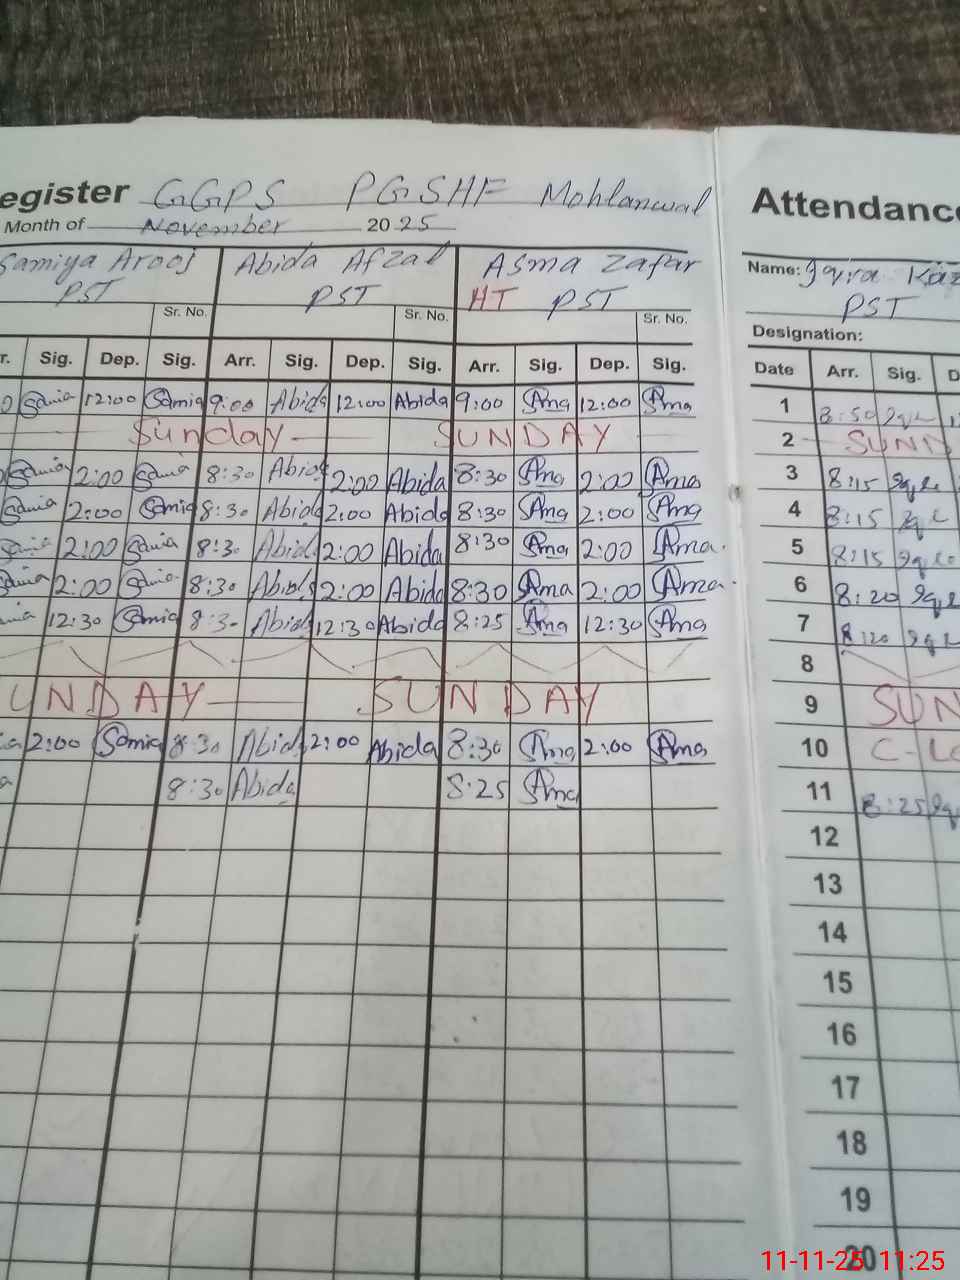 egister GGPS PGSHF Mohlanwal
Month of November 2025
Samiya Arooj Abida Afzal Asma Zafar
PST PST HT PST
Sr. No. Sr. No. Sr. No.
r. Sig. Dep. Sig. Arr. Sig. Dep. Sig. Arr. Sig. Dep. Sig.
Samia 12:00 Samia 9:00 Abida 12:00 Abida 9:00 Ama 12:00 Ama
Sunday SUNDAY
Samia 2:00 Samia 8:30 Abida 2:00 Abida 8:30 Ama 2:00 Ama
Samia 2:00 Samia 8:30 Abida 2:00 Abida 8:30 Ama 2:00 Ama
2:00 Samia 8:30 Abida 2:00 Abida 8:30 Ama 2:00 Ama.
2:00 Samia 8:30 Abida 2:00 Abida 8:30 Ama 2:00 Ama.
12:30 Samia 8:30 Abida 12:30 Abida 8:25 Ama 12:30 Ama
UNDAY SUNDAY
2:00 Samia 8:30 Abida 2:00 Abida 8:30 Ama 2:00 Ama
8:30 Abida 8:25 Ama
Attendance
Name: Iqra Kaz
PST
Designation:
Date Arr. Sig. D
1 8:50
2 SUND
3 8:15
4 8:15
5 8:15
6 8:20
7 8:20
8
9 SUN
10 C-Le
11 8:25
12
13
14
15
16
17
18
19
20
11-11-25 11:25